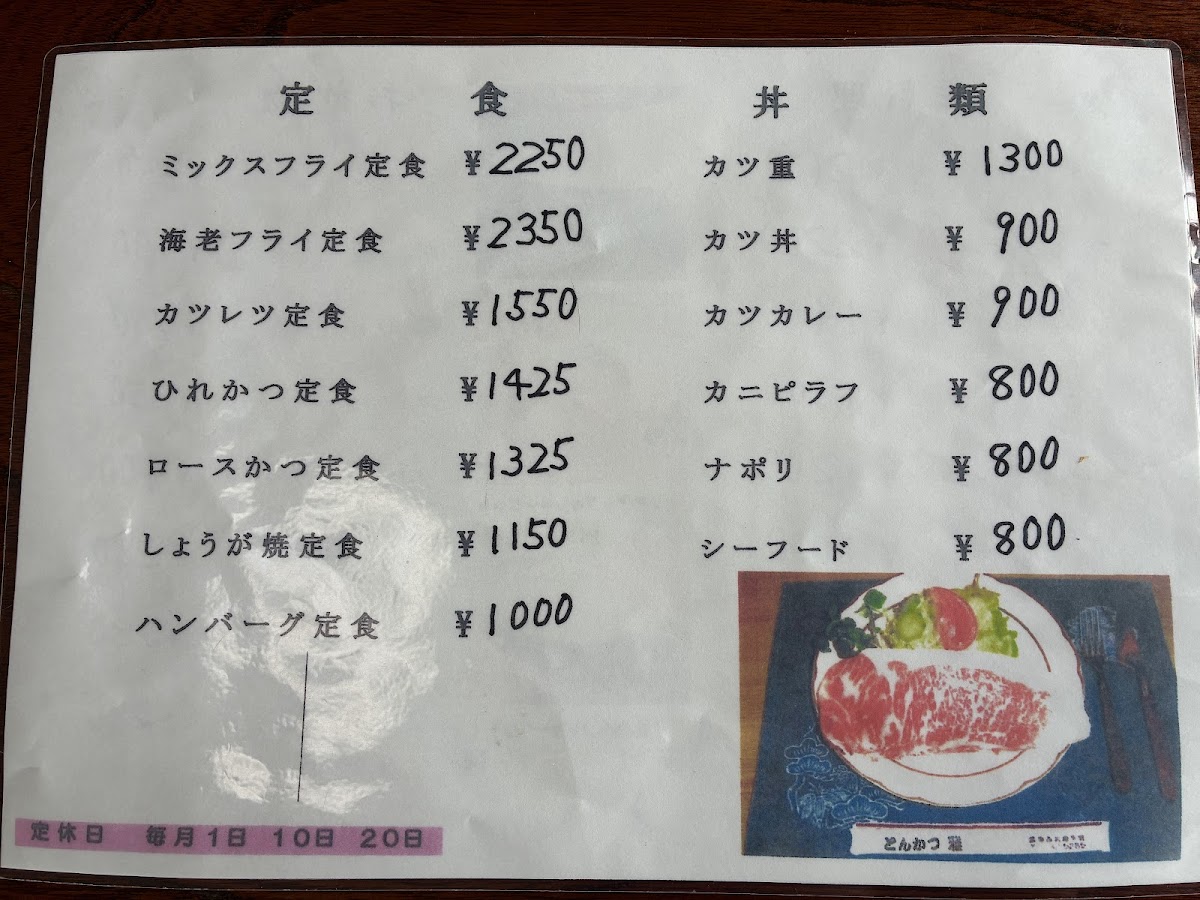 定食
ミックスフライ定食 ¥2250
海老フライ定食 ¥2350
カツレツ定食 ¥1550
ひれかつ定食 ¥1425
ロースかつ定食 ¥1325
しょうが焼定食 ¥1150
ハンバーグ定食 ¥1000
丼類
カツ重 ¥1300
カツ丼 ¥900
カツカレー ¥900
カニピラフ ¥800
ナポリ ¥800
シーフード ¥800
とんかつ
定休日 毎月1日 10日 20日